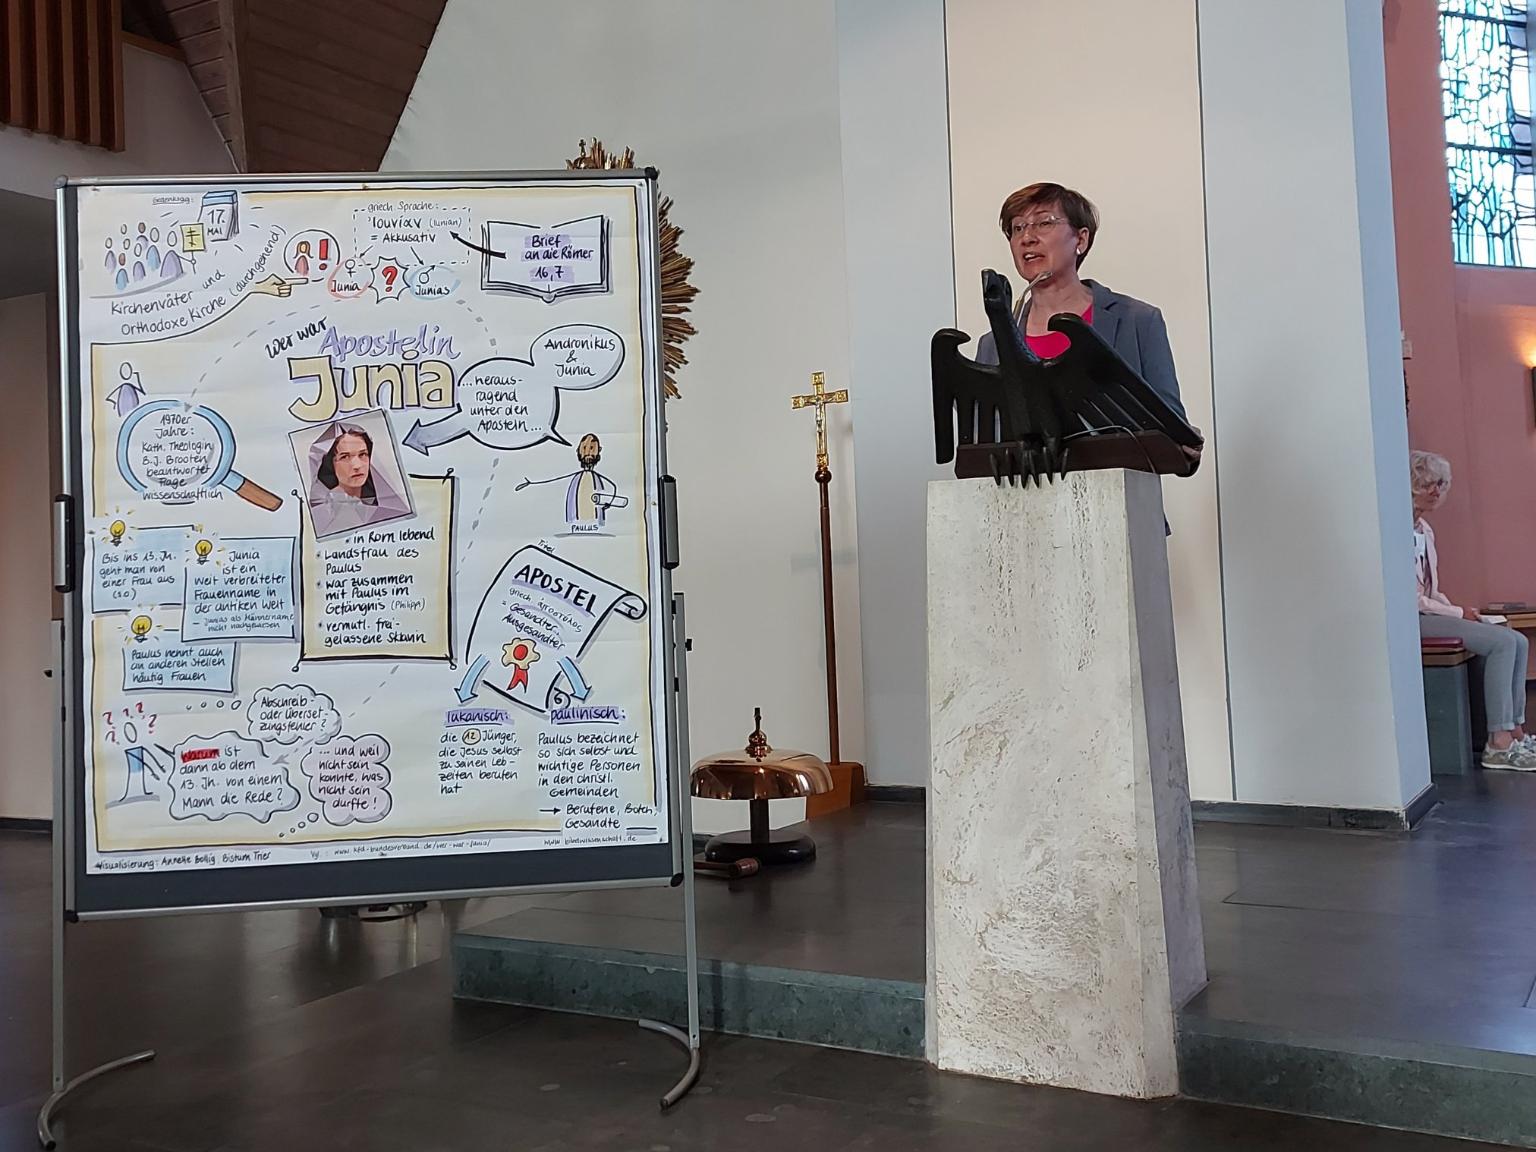 Gedenktag:
17.
MAI
Kirchenväter und
Orthodoxe Kirche (durchgehend)
griech Sprache:
Ἰουνίαν (Iunian)
= Akkusativ
Junia
?
Junias
!
Brief
an die Römer
16,7
wer war
Apostelin
Junia
Andronikus
&
Junia
...heraus-
ragend
unter den
Aposteln...
PAULUS
1970er
Jahre:
Kath. Theologin
B.J. Brooten
beantwortet
Frage
wissenschaftlich
Bis ins 13. Jh.
geht man von
einer Frau aus
(s.o.)
Junia
ist ein
weit verbreiteter
Frauenname in
der antiken Welt
- Junias als Männername
nicht nachgewiesen
Paulus nennt auch
an anderen Stellen
häufig Frauen
• in Rom lebend
• Landsfrau des
Paulus
• war zusammen
mit Paulus im
Gefängnis (Philippi)
• vermutl. frei-
gelassene Sklavin
Titel
APOSTEL
griech. ἀπόστολος
= Gesandter,
Ausgesandter
lukanisch:
die 12 Jünger,
die Jesus selbst
zu seinen Leb-
zeiten berufen
hat
paulinisch:
Paulus bezeichnet
so sich selbst und
wichtige Personen
in den christl.
Gemeinden
→ Berufene, Boten,
Gesandte
? ? ? ?
Warum ist
dann ab dem
13. Jh. von einem
Mann die Rede?
Abschreib-
oder Überset-
zungsfehler?
... und weil
nicht sein
konnte, was
nicht sein
durfte!
Visualisierung: Annette Bollig Bistum Trier
Vgl.: www.kfd-bundesverband.de/wer-war-junia/
www.bibelwissenschaft.de